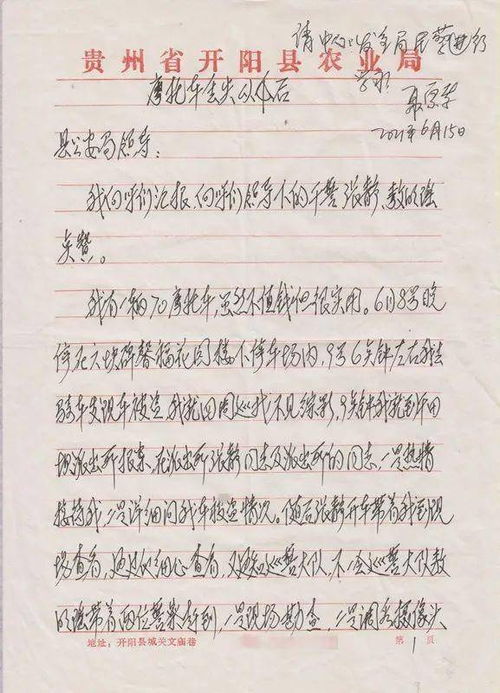 请中心发全局民警进行
学习
贵州省开阳县农业局
摩托车丢失以后
2021年6月15日
县公安局领导:
我向你们汇报、向你们领导下的干警张静、敖
点赞。
我有一辆70摩托车,虽然不值钱但很实用。6月8号晚
停在大块碑馨福花园楼下停车场内,9号6点钟左右我去
骑车发现车被盗,我就四周巡找不见踪影,9点钟我就到
派出所报案,在派出所张静同志及派出所的同志,一是热情
接待我,二是详细问我车被盗情况。随后张静开车带着我到现
场查看,通过细心查看,又通知巡警大队,不一会巡警大队敖
带着两位警察赶到,一是现场勘查,二是调看摄像头
地址:开阳县城关文庙巷
第1页